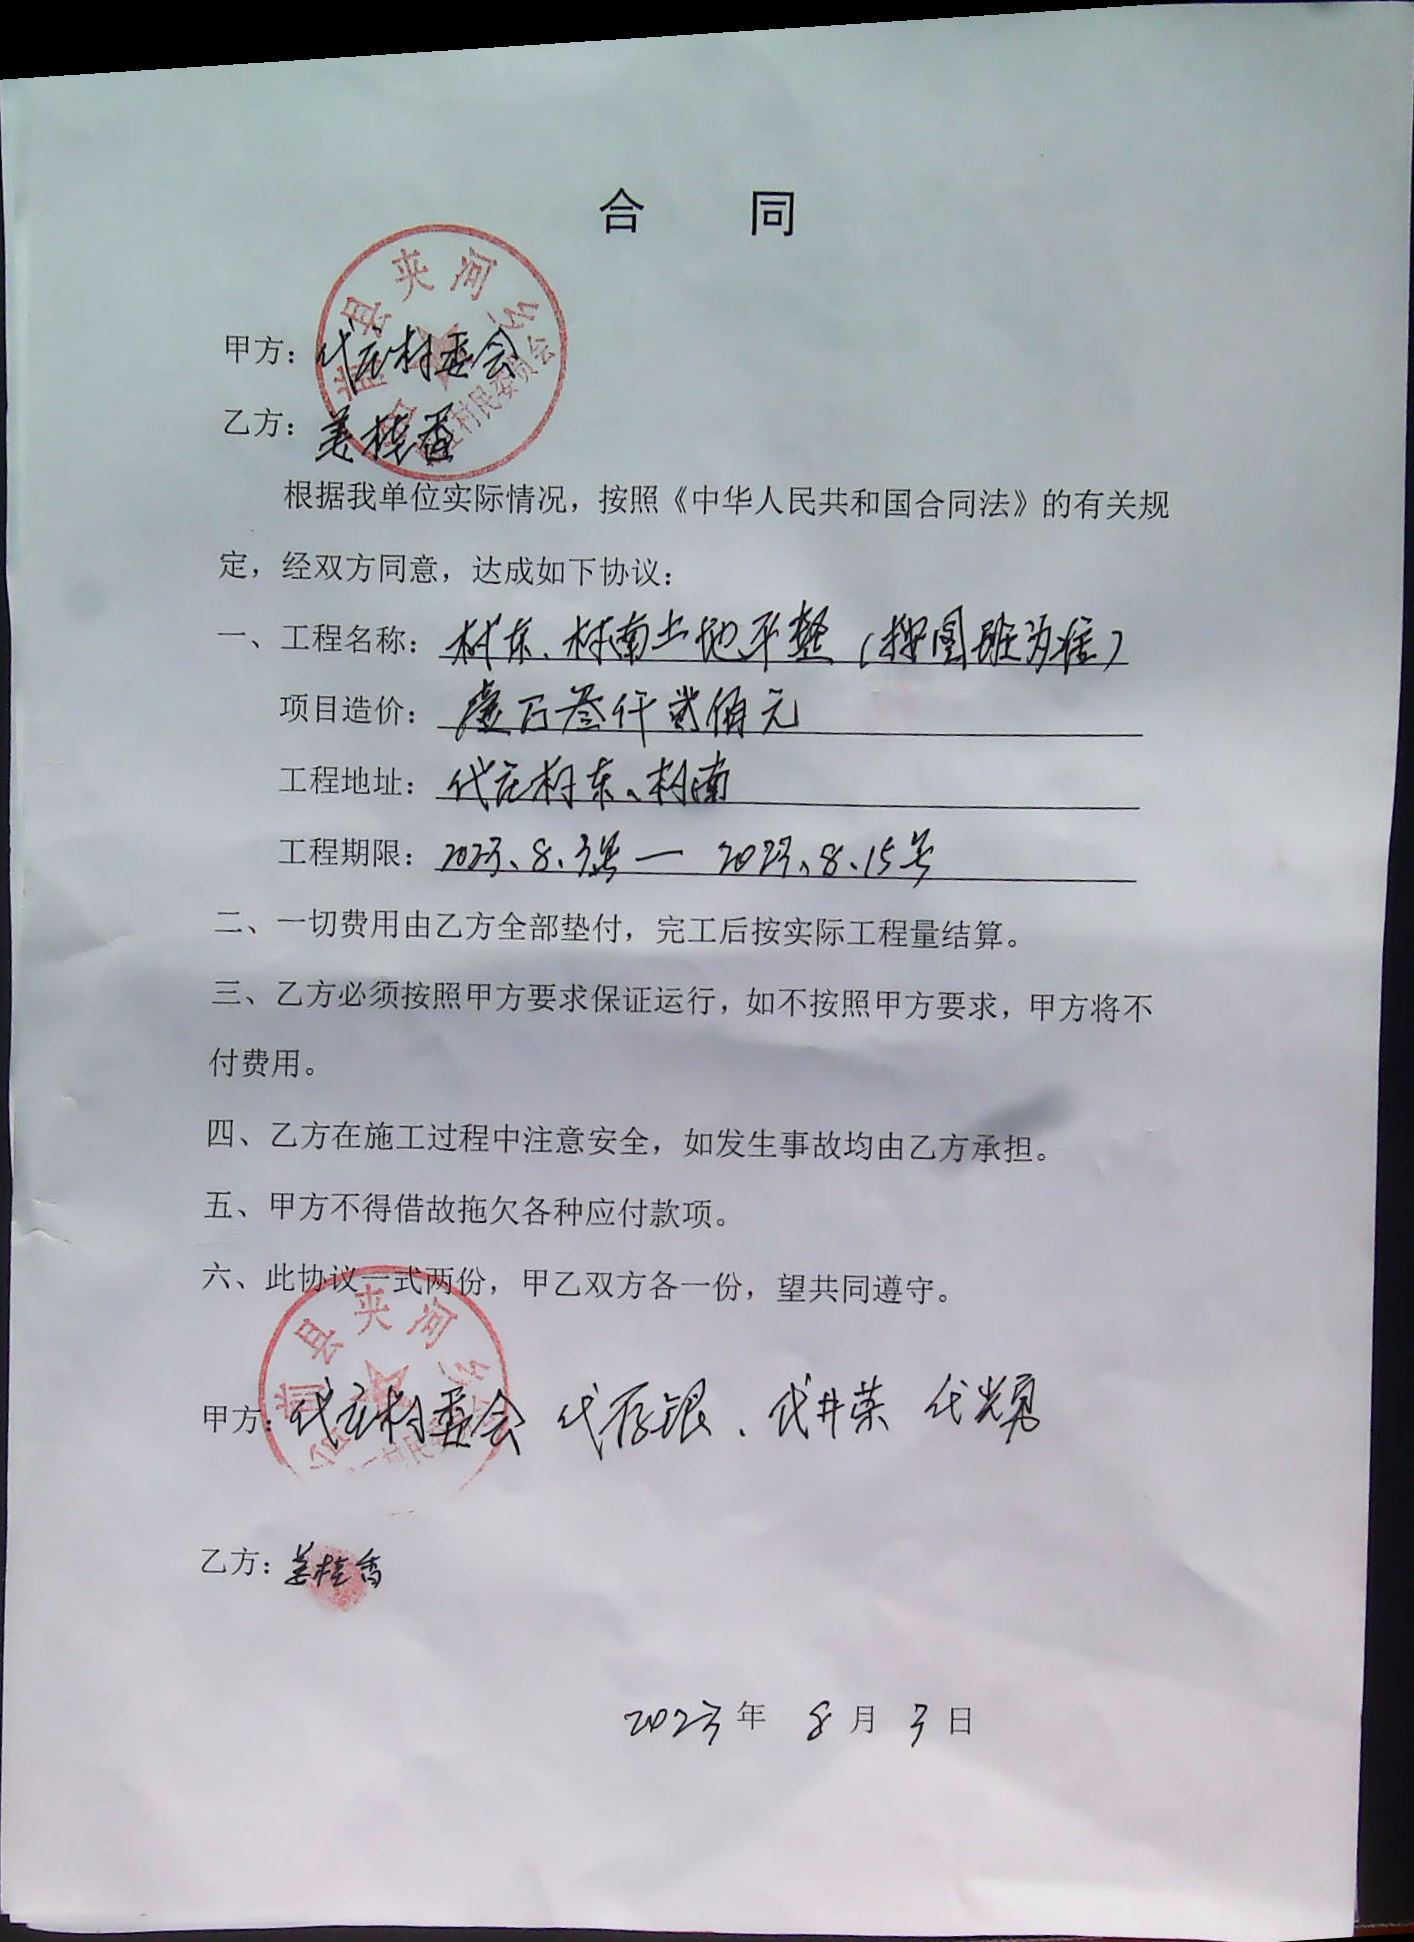 合 同
县夹河乡
村民委员会
甲方：代庄村委会
乙方：姜桂香
根据我单位实际情况，按照《中华人民共和国合同法》的有关规
定，经双方同意，达成如下协议：
一、工程名称：村东、村南土地平整（按图斑为准）
项目造价：壹万叁仟贰佰元
工程地址：代庄村东、村南
工程期限：2023、8、3号—2023、8、15号
二、一切费用由乙方全部垫付，完工后按实际工程量结算。
三、乙方必须按照甲方要求保证运行，如不按照甲方要求，甲方将不
付费用。
四、乙方在施工过程中注意安全，如发生事故均由乙方承担。
五、甲方不得借故拖欠各种应付款项。
六、此协议一式两份，甲乙双方各一份，望共同遵守。
县夹河乡
甲方：代庄村委会 代存银、代井荣 代光勇
乙方：姜桂香
2023年 8月 3日